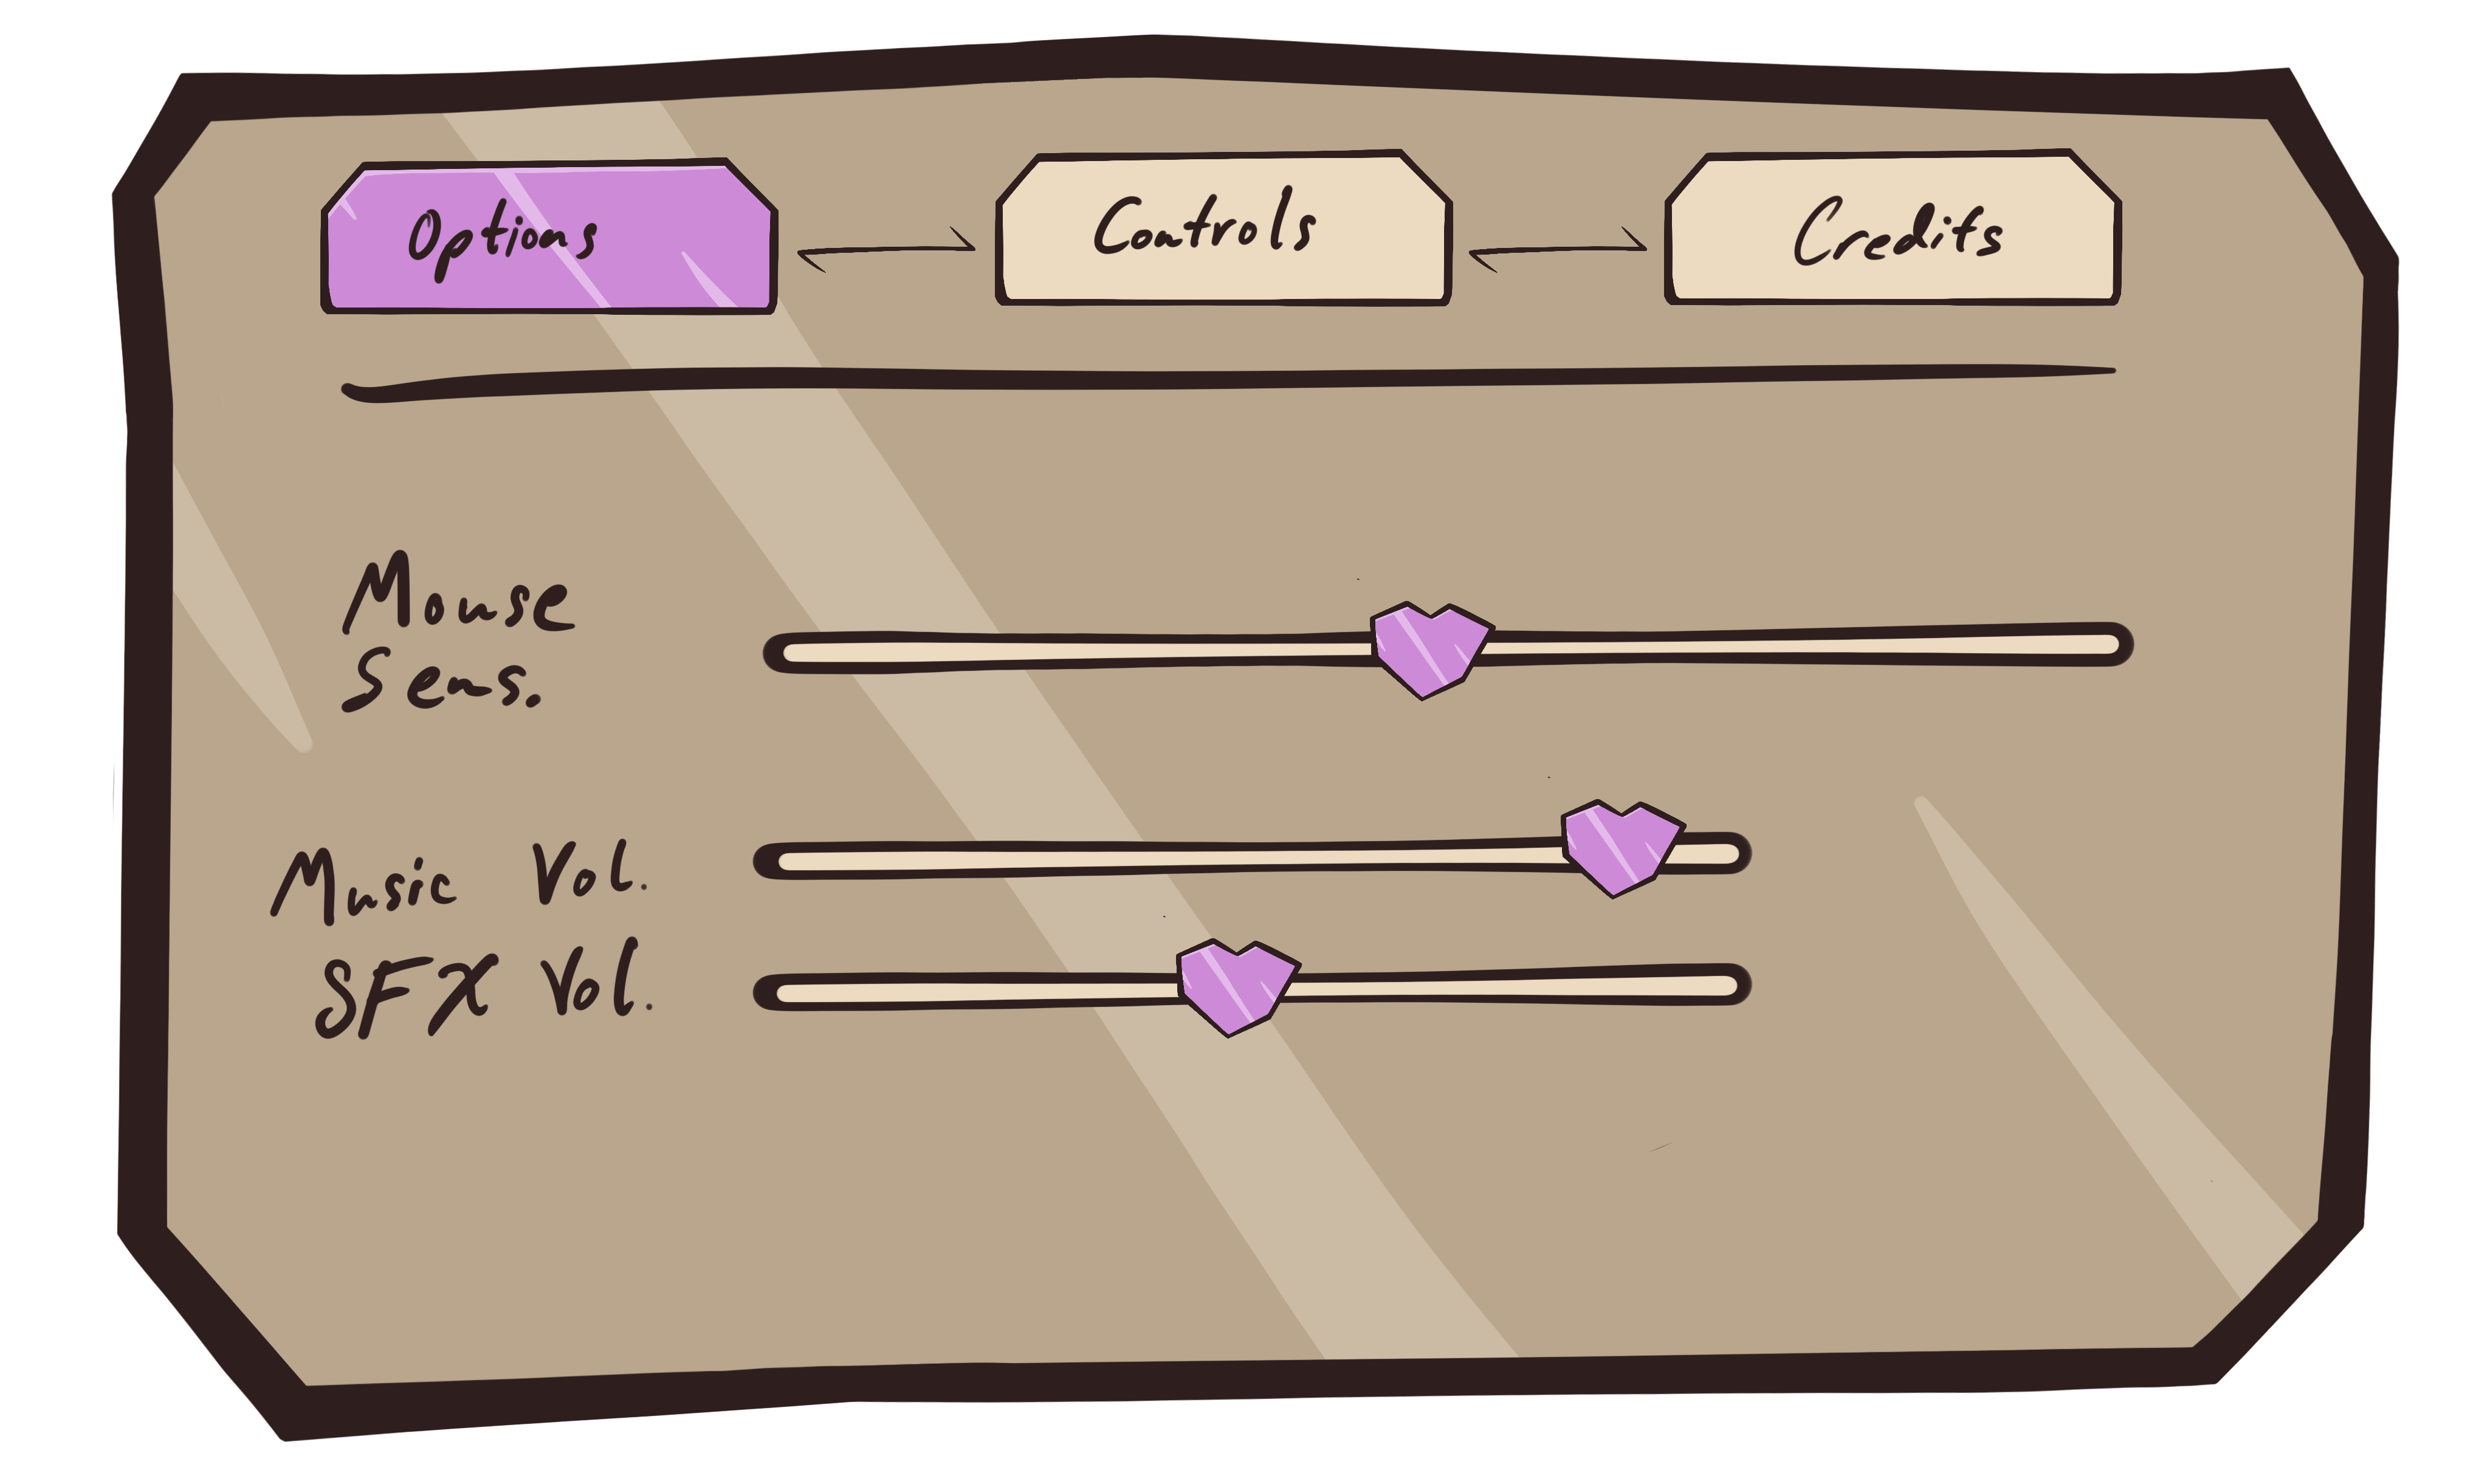 Options Controls Credits
Mouse
Sens.
Music Vol.
SFX Vol.